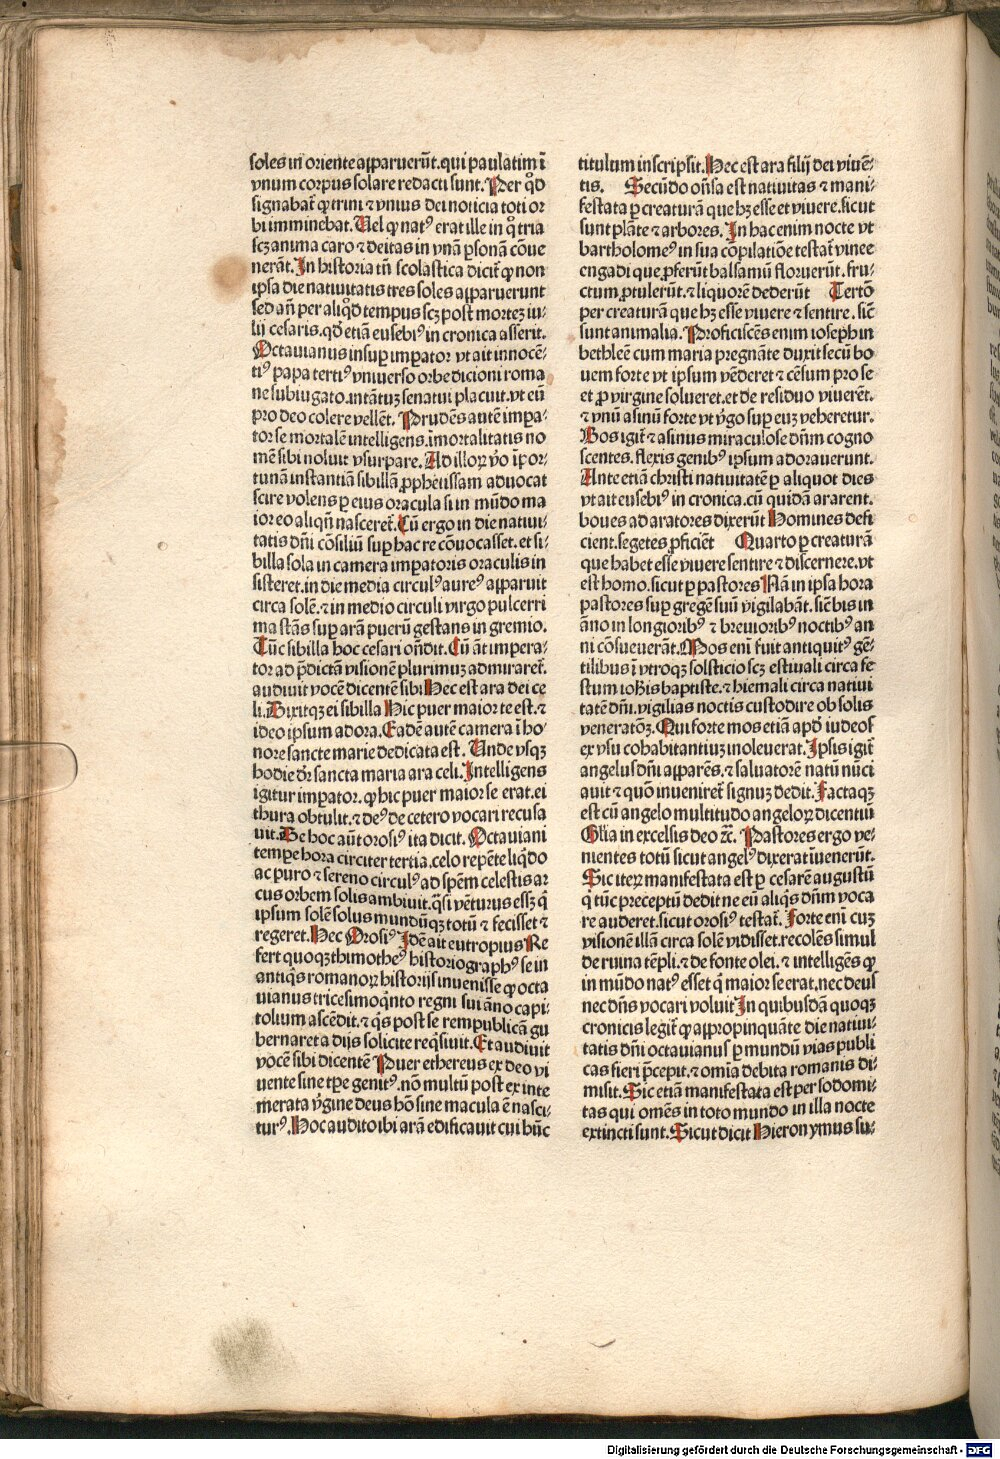 soles in oriente apparuerũt. qui paulatim ĩ
vnum corpus solare redacti sunt. Per qd̾
signabat̃ ꝙ trini ⁊ vnius dei noticia toti or
bi imminebat. Uel ꝙ nat⁹ erat ille in q̊ tria
scꝫ anima caro ⁊ deitas in vnã ꝑsonã cõue
nerãt. In historia tñ scolastica dicit̃ ꝙ non
ipsa die natiuitatis tres soles apparuerunt
sed añ per aliq̊d tempus scꝫ post mortez iu-
lij cesaris. qd̾ etiã eusebi⁹ in cronica asserit.
Octauianus insuꝑ imꝑator vt ait innocẽ-
ti⁹ papa terti⁹ vniuerso orbe dicioni roma
ne subiugato. intãtuꝫ senatui placuit. vt eũ
pro deo colere vellẽt. Prudẽs autẽ imꝑa-
tor se mortalẽ intelligens. ĩmortalitatis no
mẽ sibi noluit vsurpare. Ad illoꝝ v̾o ĩpor-
tunã instantiã sibillã ꝓphetissam aduocat
scire volens ꝑ eius oracula si in mũdo ma
ior eo aliqñ nasceret̃. Cũ ergo in die natiui-
tatis dñi cõsiliũ suꝑ hac re cõuocasset. et si-
billa sola in camera imꝑatoris oraculis in
sisteret. in die media circul⁹ aure⁹ apparuit
circa solẽ. ⁊ in medio circuli virgo pulcerri
ma stãs suꝑ arã puerũ gestans in gremio.
Tũc sibilla hoc cesari oñdit. Cũ aũt imꝑera-
tor ad p̃dictã visionẽ plurimuꝫ admiraret̃.
audiuit vocẽ dicentẽ sibi Hec est ara dei ce
li. Dixitqꝫ ei sibilla Hic puer maior te est. ⁊
ideo ipsum adora. Eadẽ autẽ camera ĩ ho-
nore sancte marie dedicata est. Unde vsqꝫ
hodie dr̃ sancta maria ara celi. Intelligens
igitur imꝑator. ꝙ hic puer maior se erat. ei
thura obtulit. ⁊ de⁹ de cetero vocari recusa
uit. De hoc aũt orosi⁹ ita dicit. Octauiani
temꝑe hora circiter tertia. celo repẽte liq̃do
ac puro ⁊ sereno circul⁹ ad spẽm celestis ar
cus orbem solis ambiuit. q̃si vẽturus essꝫ q̃
ipsum solẽ solus mundũqꝫ totũ ⁊ fecisset ⁊
regeret. Hec Orosi⁹ Idẽ ait eutropius Re
fert quoqꝫ thimothe⁹ historiograph⁹ se in
antiq̃s romanoꝝ historijs inuenisse ꝙ octa
uianus tricesimoq̃nto regni sui ãno capi-
tolium ascẽdit. ⁊ q̃s post se rempublicã gu
bernaret a dijs solicite req̃siuit. Et audiuit
vocẽ sibi dicentẽ Puer ethereus ex deo vi
uente sine tꝑe genit⁹. nõ multũ post ex inte
merata v̾gine deus hõ sine macula ẽ nasci-
tur⁹. Hoc audito ibi arã edificauit cui hũc
titulum inscripsit. Hec est ara filij dei viuẽ-
tis. Secũdo oñsa est natiuitas ⁊ mani-
festata ꝑ creaturã que hꝫ esse et viuere. sicut
sunt plãte ⁊ arbores. In hac enim nocte vt
bartholome⁹ in sua cõpilatiõe testat̃ vinee
engadi que ꝓferũt balsamũ floruerũt. fru-
ctum ꝓtulerũt. ⁊ liquorẽ dederũt Tertõ
per creaturã que hꝫ esse viuere ⁊ sentire. sic̃
sunt animalia. Proficiscẽs enim ioseph in
bethleẽ cum maria pregnãte duxit secũ bo
uem forte vt ipsum vẽderet ⁊ cẽsum pro se
et ꝓ virgine solueret. et de residuo viuerẽt.
⁊ vnũ asinũ forte vt v̾go suꝑ euꝫ veheretur.
Bos igit̃ ⁊ asinus miraculose dñm cogno
scentes. flexis genib⁹ ipsum adorauerunt.
Ante etiã christi natiuitatẽ ꝑ aliquot dies
vt ait eusebi⁹ in cronica. cũ quidã ararent.
boues ad aratores dixerũt Homines defi
cient. segetes ꝓficiẽt Quarto ꝑ creaturã
que habet esse viuere sentire ⁊ discernere. vt
est homo. sicut ꝑ pastores Nã in ipsa hora
pastores suꝑ gregẽ suũ vigilabãt. sic̃ bis in
ãno in longiorib⁹ ⁊ breuiorib⁹ noctib⁹ an
ni cõsueuerãt. Mos eni᷑ fuit antiquit⁹ gẽ-
tilibus ĩ vtroqꝫ solsticio scꝫ estiuali circa fe
stum iohis baptiste. ⁊ hiemali circa natiui
tatẽ dñi. vigilias noctis custodire ob solis
veneratõꝫ. Qui forte mos etiã apd̾ iudeos
ex vsu cohabitantiuꝫ inoleuerat. Ipsis igit̃
angelus dñi apparẽs. ⁊ saluatorẽ natũ nũci
auit ⁊ quõ inuenirẽt signuꝫ dedit. Factaqꝫ
est cũ angelo multitudo angeloꝝ dicentiũ
Glia in excelsis deo ⁊c̃. Pastores ergo ve-
nientes totũ sicut angel⁹ dixerat ĩuenerũt.
Sic iteꝝ manifestata est ꝑ cesarẽ augustũ
q̃ tũc preceptũ dedit ne eũ aliq̃s dñm voca
re auderet. sicut orosi⁹ testat̃. Forte eni᷑ cuꝫ
visionẽ illã circa solẽ vidisset. recolẽs simul
de ruina tẽpli. ⁊ de fonte olei. ⁊ intelligẽs ꝙ
in mũdo nat⁹ esset q̃ maior se erat. nec deus
nec dñs vocari voluit In quibusdã quoqꝫ
cronicis legit̃ ꝙ appropinquãte die natiui-
tatis dñi octauianus ꝑ mundũ vias publi
cas fieri p̃cepit. ⁊ omĩa debita romanis di-
misit. Sic etiã manifestata est per sodomi-
tas qui omẽs in toto mundo in illa nocte
extincti sunt. Sicut dicit Hieronymus su-
Digitalisierung gefördert durch die Deutsche Forschungsgemeinschaft - DFG